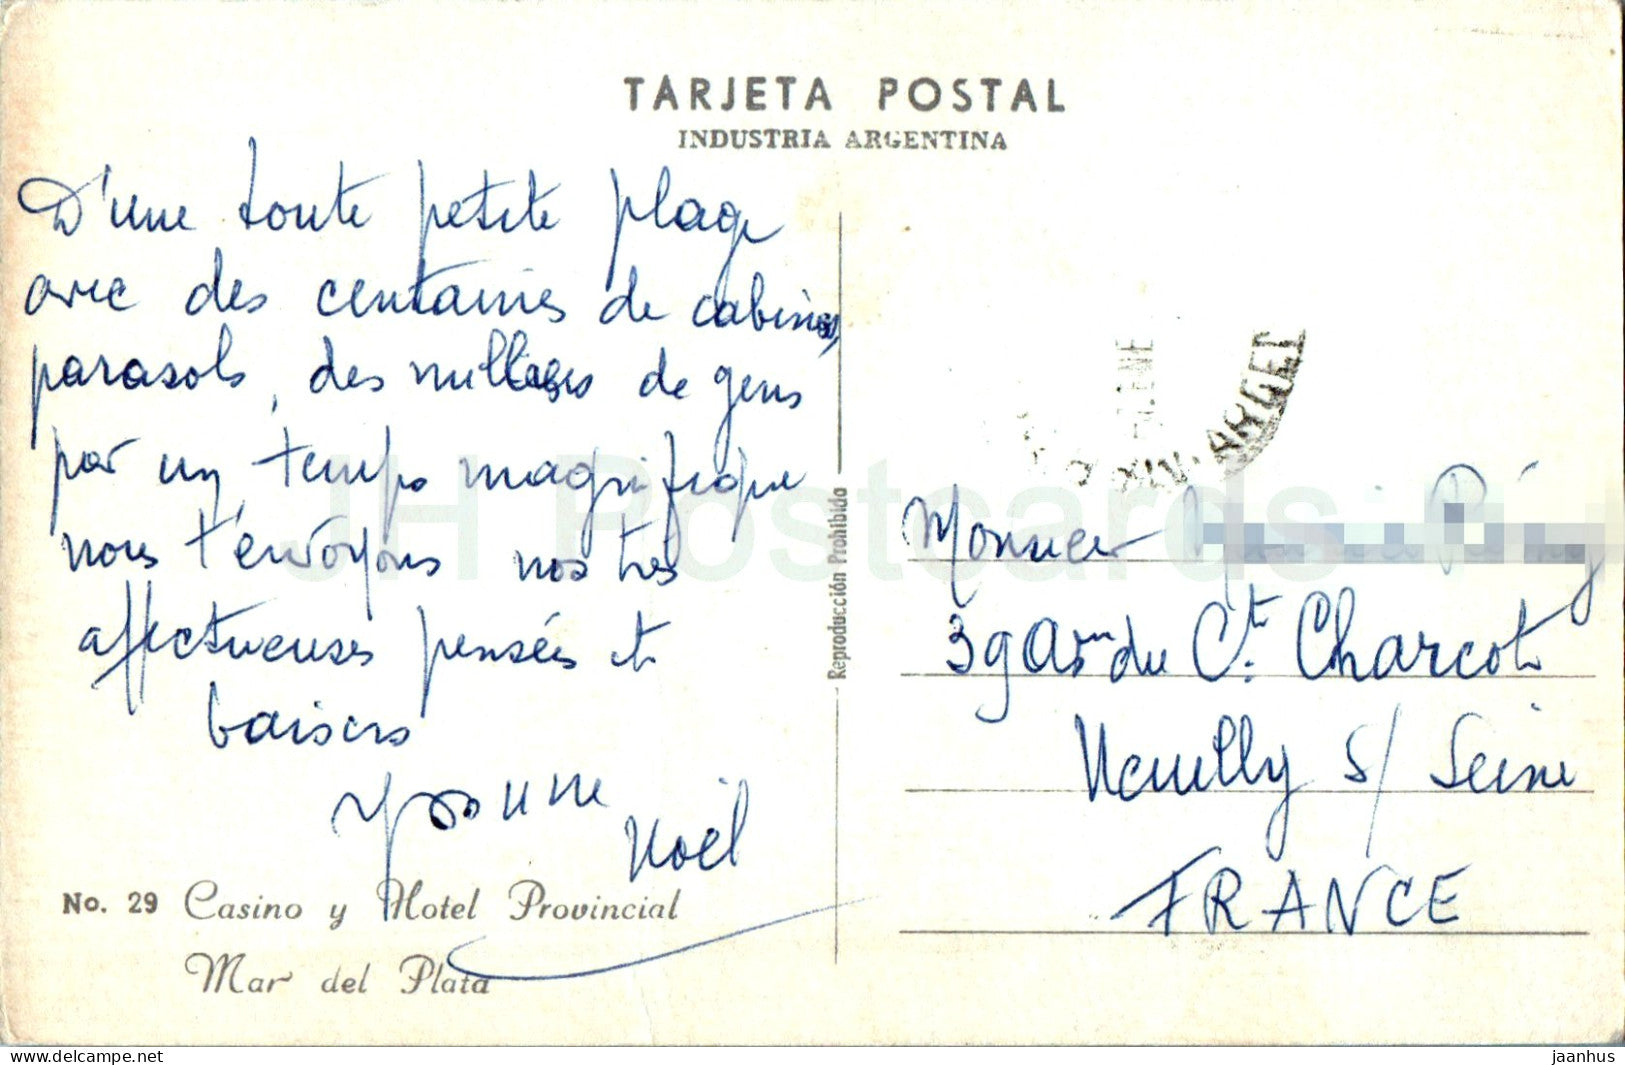 TARJETA POSTAL
INDUSTRIA ARGENTINA
D'une toute petite plage
avec des centaines de cabines,
parasols, des milliers de gens
par un temps magnifique
nous t'envoyons nos très
affectueuses pensées et
baisers
Yvonne
Noël
No. 29 Casino y Hotel Provincial
Mar del Plata
Reproducción Prohibida
ENE
ARGEN
Monsieur
39 du Ct. Charcot
Neuilly s/ Seine
FRANCE
JH Postcards
www.delcampe.net
jaanhus